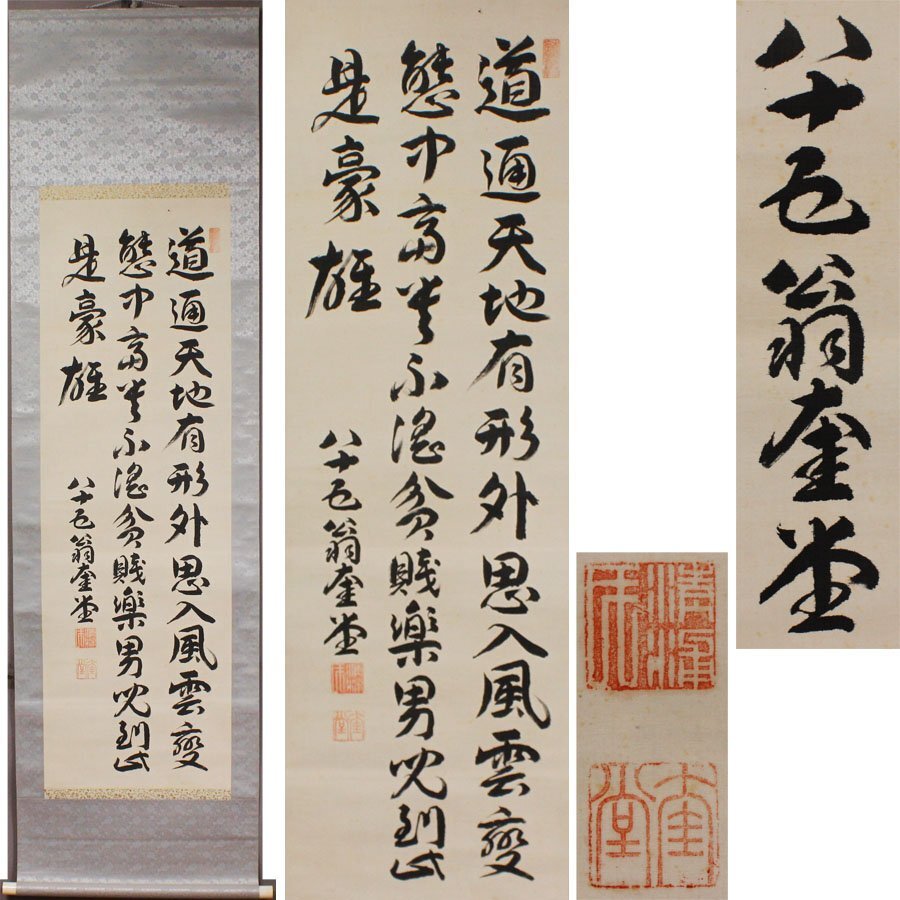 道通天地有形外思入風雲變
態中富貴不淫貧賤樂男兒到此
是豪雄
八十五翁奎堂
道通天地有形外思入風雲變
態中富貴不淫貧賤樂男兒到此
是豪雄
八十五翁奎堂
八十五翁奎堂
清浦
奎堂